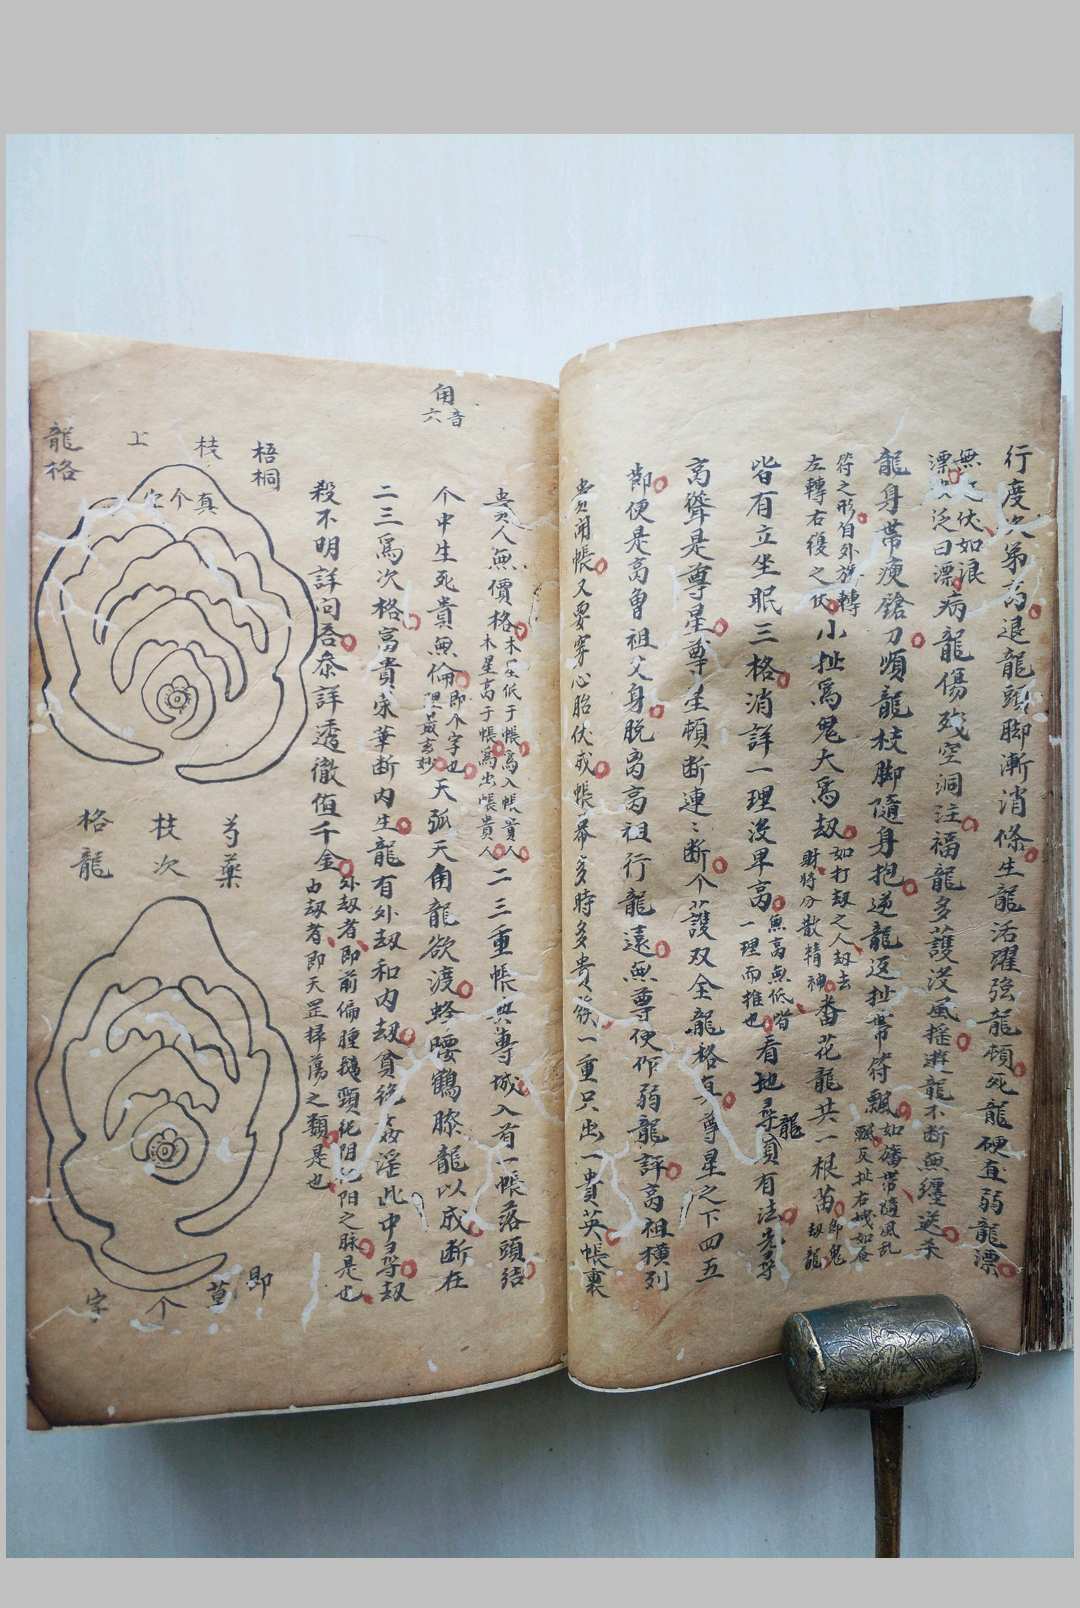 行度次第高退龍頭脚漸消條生龍活躍強龍頓死龍硬直弱龍漂
無 伏如浪
漂 泛曰漂
病龍傷殘空洞注福龍多護沒風搖遊龍不斷無纏送杀
龍身帶痩鎗刀順龍枝脚隨身抱逆龍返扯帶符飄
如旛帶隨風乱
飄反扯右
符之形自外旋轉
左轉右後之伏
小扯為鬼大為刼
如打刼之人刼去
財將分散精神
畨花龍共一根苗
即鬼
刼龍
皆有立坐眠三格消詳一理没早高
無高無低皆
一理而推也
看地尋龍須有法先尋
高聳是尊星尊星頓断連〻断个護双全龍格真尊星之下四五
節便是高曾祖父身脱离高祖行龍遠無尊便作弱龍評高祖橫列
貴開帳又要穿心胎伏成帳幕多時多貴 一重只出一貴英帳裏
甪
音六
貴人無價格
木星低于帳為入帳貴人
木星高于帳為出帳貴人
二三重帳與尊城入首一帳落頭結
个中生死貴無倫
即个字也
理最玄妙
天弧天角龍欲渡蜂腰鶴膝龍以成断在
二三為次格富貴宋華断内生龍有外刼和内刼貧絶 淫此中尋刼
殺不明詳问吾叅詳透徹值千金
外刼者即前偏腫鵝頸純阴純阳之脉是也
内刼者即天罡掃蕩之類是也
梧桐
枝
上
龍格
真个字
芍藥
枝次
格龍
即
草
个
字